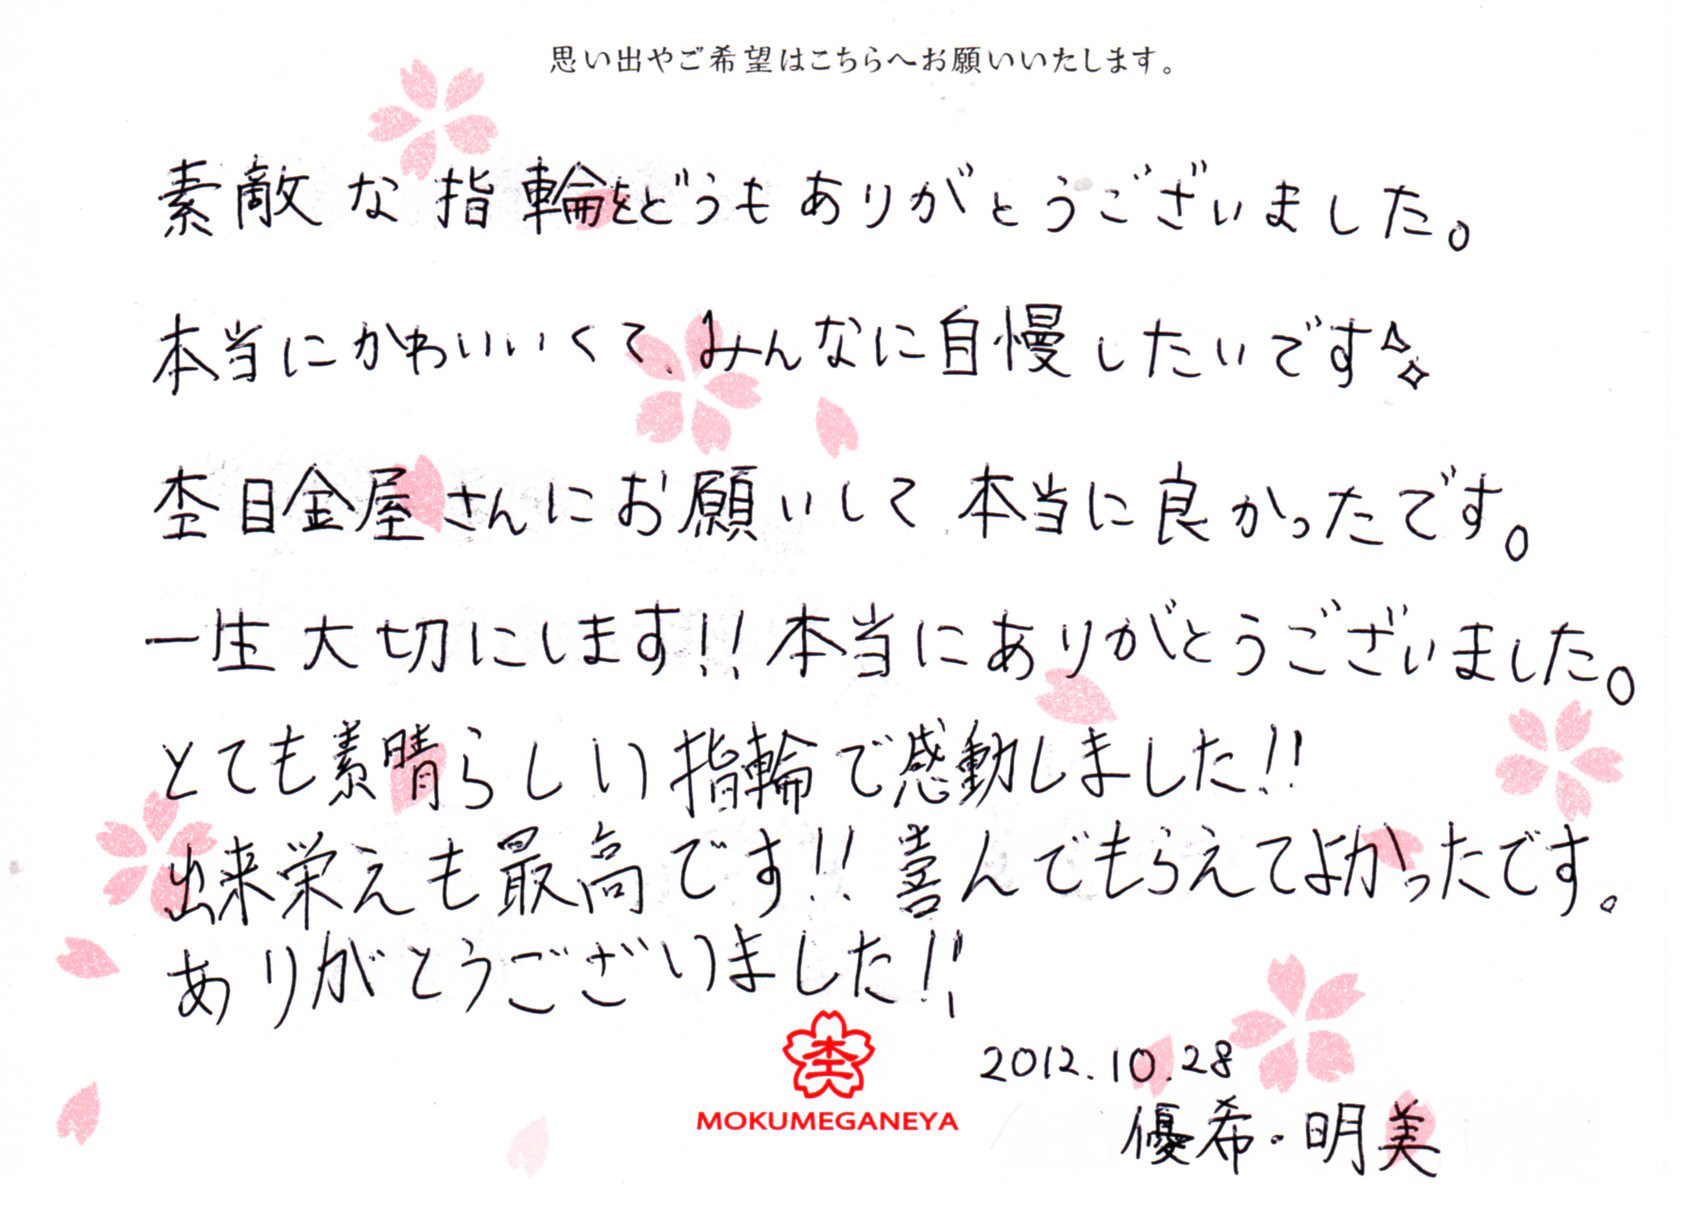 思い出やご希望はこちらへお願いいたします。
素敵な指輪をどうもありがとうございました。
本当にかわいいくて、みんなに自慢したいです
杢目金屋さんにお願いして本当に良かったです。
一生大切にします!!本当にありがとうございました。
とても素晴らしい指輪で感動しました!!
出来栄えも最高です!!喜んでもらえてよかったです。
ありがとうございました!!
杢
MOKUMEGANEYA
2012.10.28
優希・明美